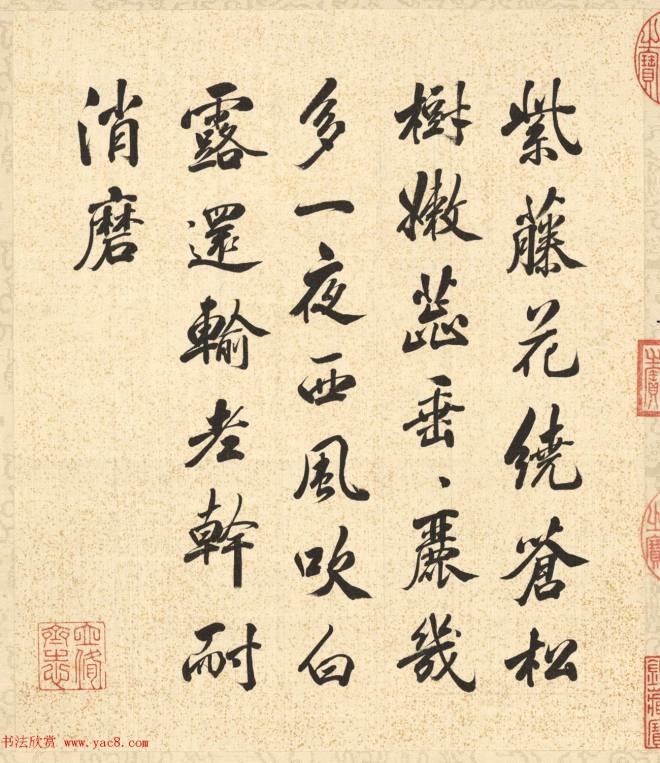 紫藤花繞蒼松
樹嫩蕊垂、麗幾
多一夜西風吹白
露還輸老幹耐
消磨
書法欣赏 www.yac8.com